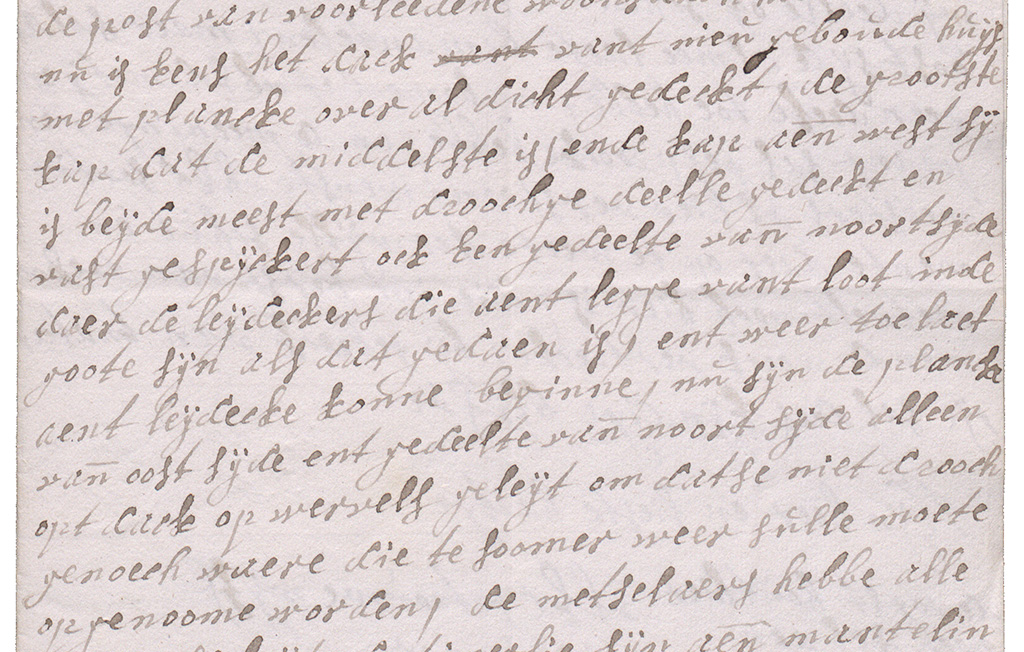 de post van voorleedene woons
nu is eens het dack vant vant nieu geboude huijs
met plancke over al dicht gedeckt, de grootste
kap dat de middelste is, ende kap aen̄ west sÿ
is beÿde meest met droochge deelle gedeckt en
vast gespÿckert ock een gedeelte van̄ noortsÿde
daer de leÿdeckers die aent legge vant loot inde
goote sÿn als dat gedaen is, ent weer toe laet
aent leÿdecke konne beginne, nu sÿn de plancke
van̄ oost sÿde ent gedeelte van̄ noort sÿde alleen
opt dack op wervels geleÿt om datse niet drooch
genoech waere die te soomer weer sulle moete
opgenoome worden, de metselaers hebbe alle
sÿn aen̄ mantelin